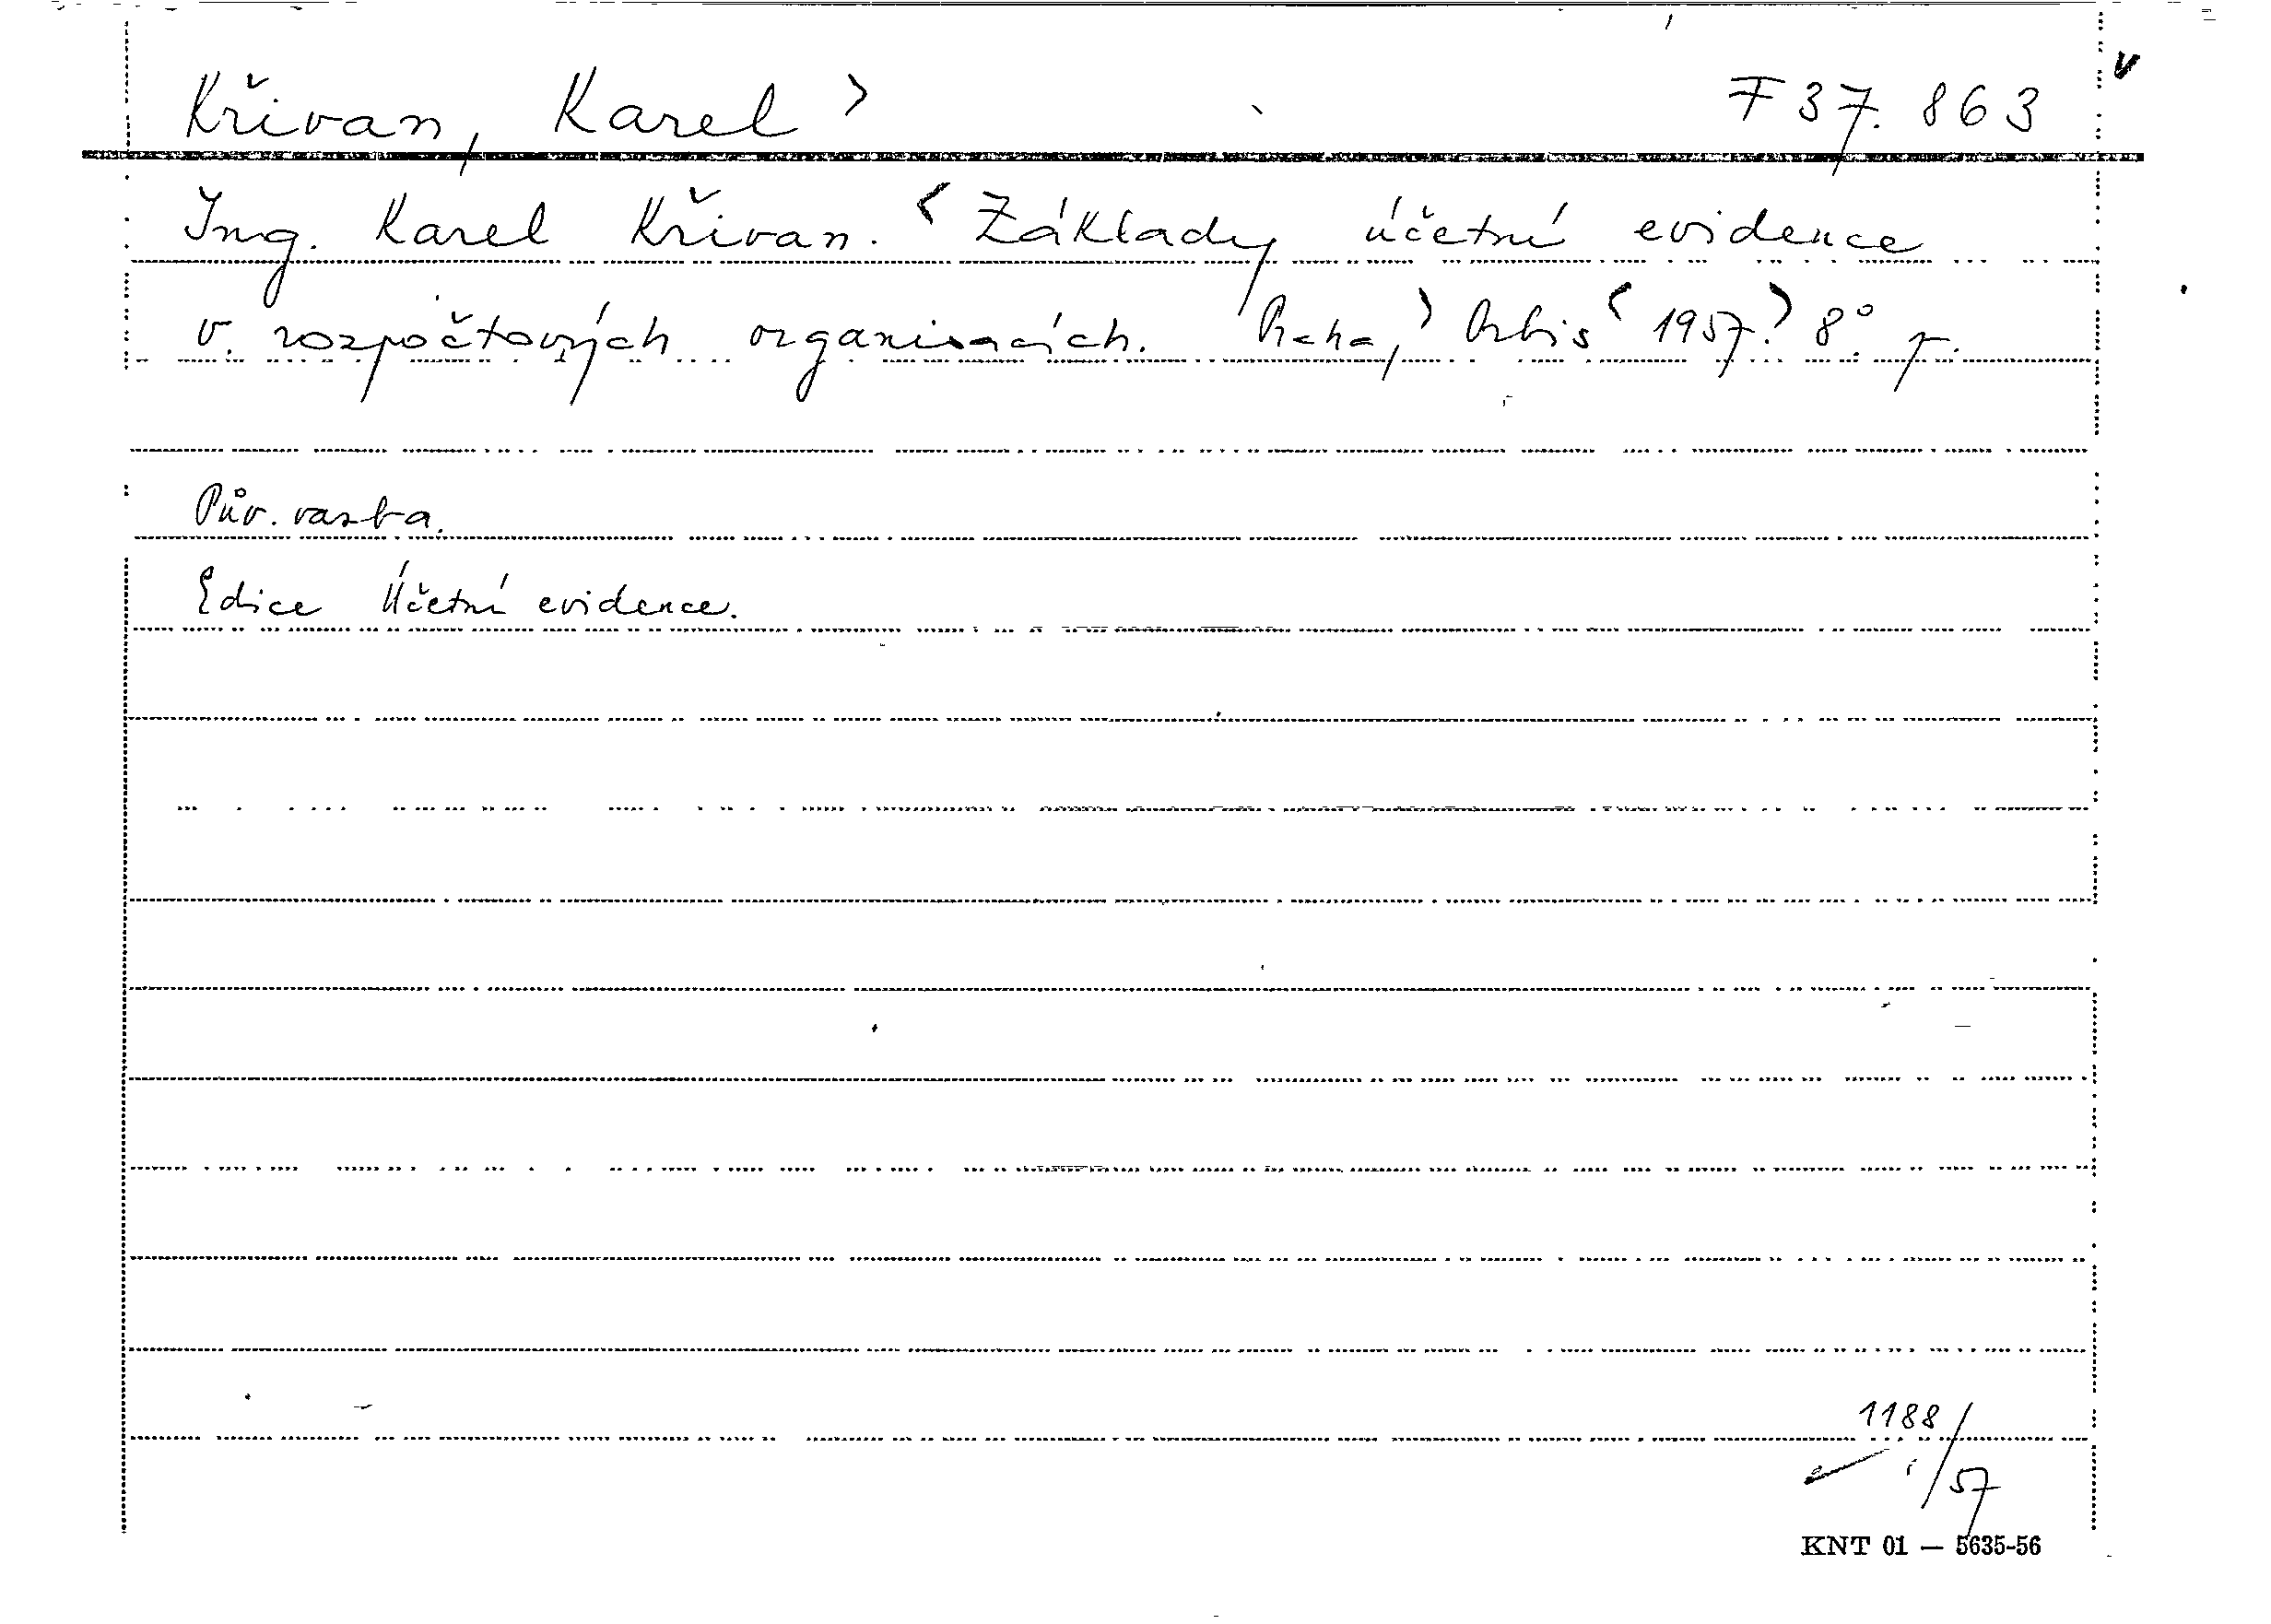 Křivan, Karel > F 37.863 v
Ing. Karel Křivan. < Základy účetní evidence
v rozpočtových organisacích. Praha, > Orbis < 1957. > 8° p.
Pův. vazba.
Edice Účetní evidence.
1188/57
KNT 01 — 5635-56